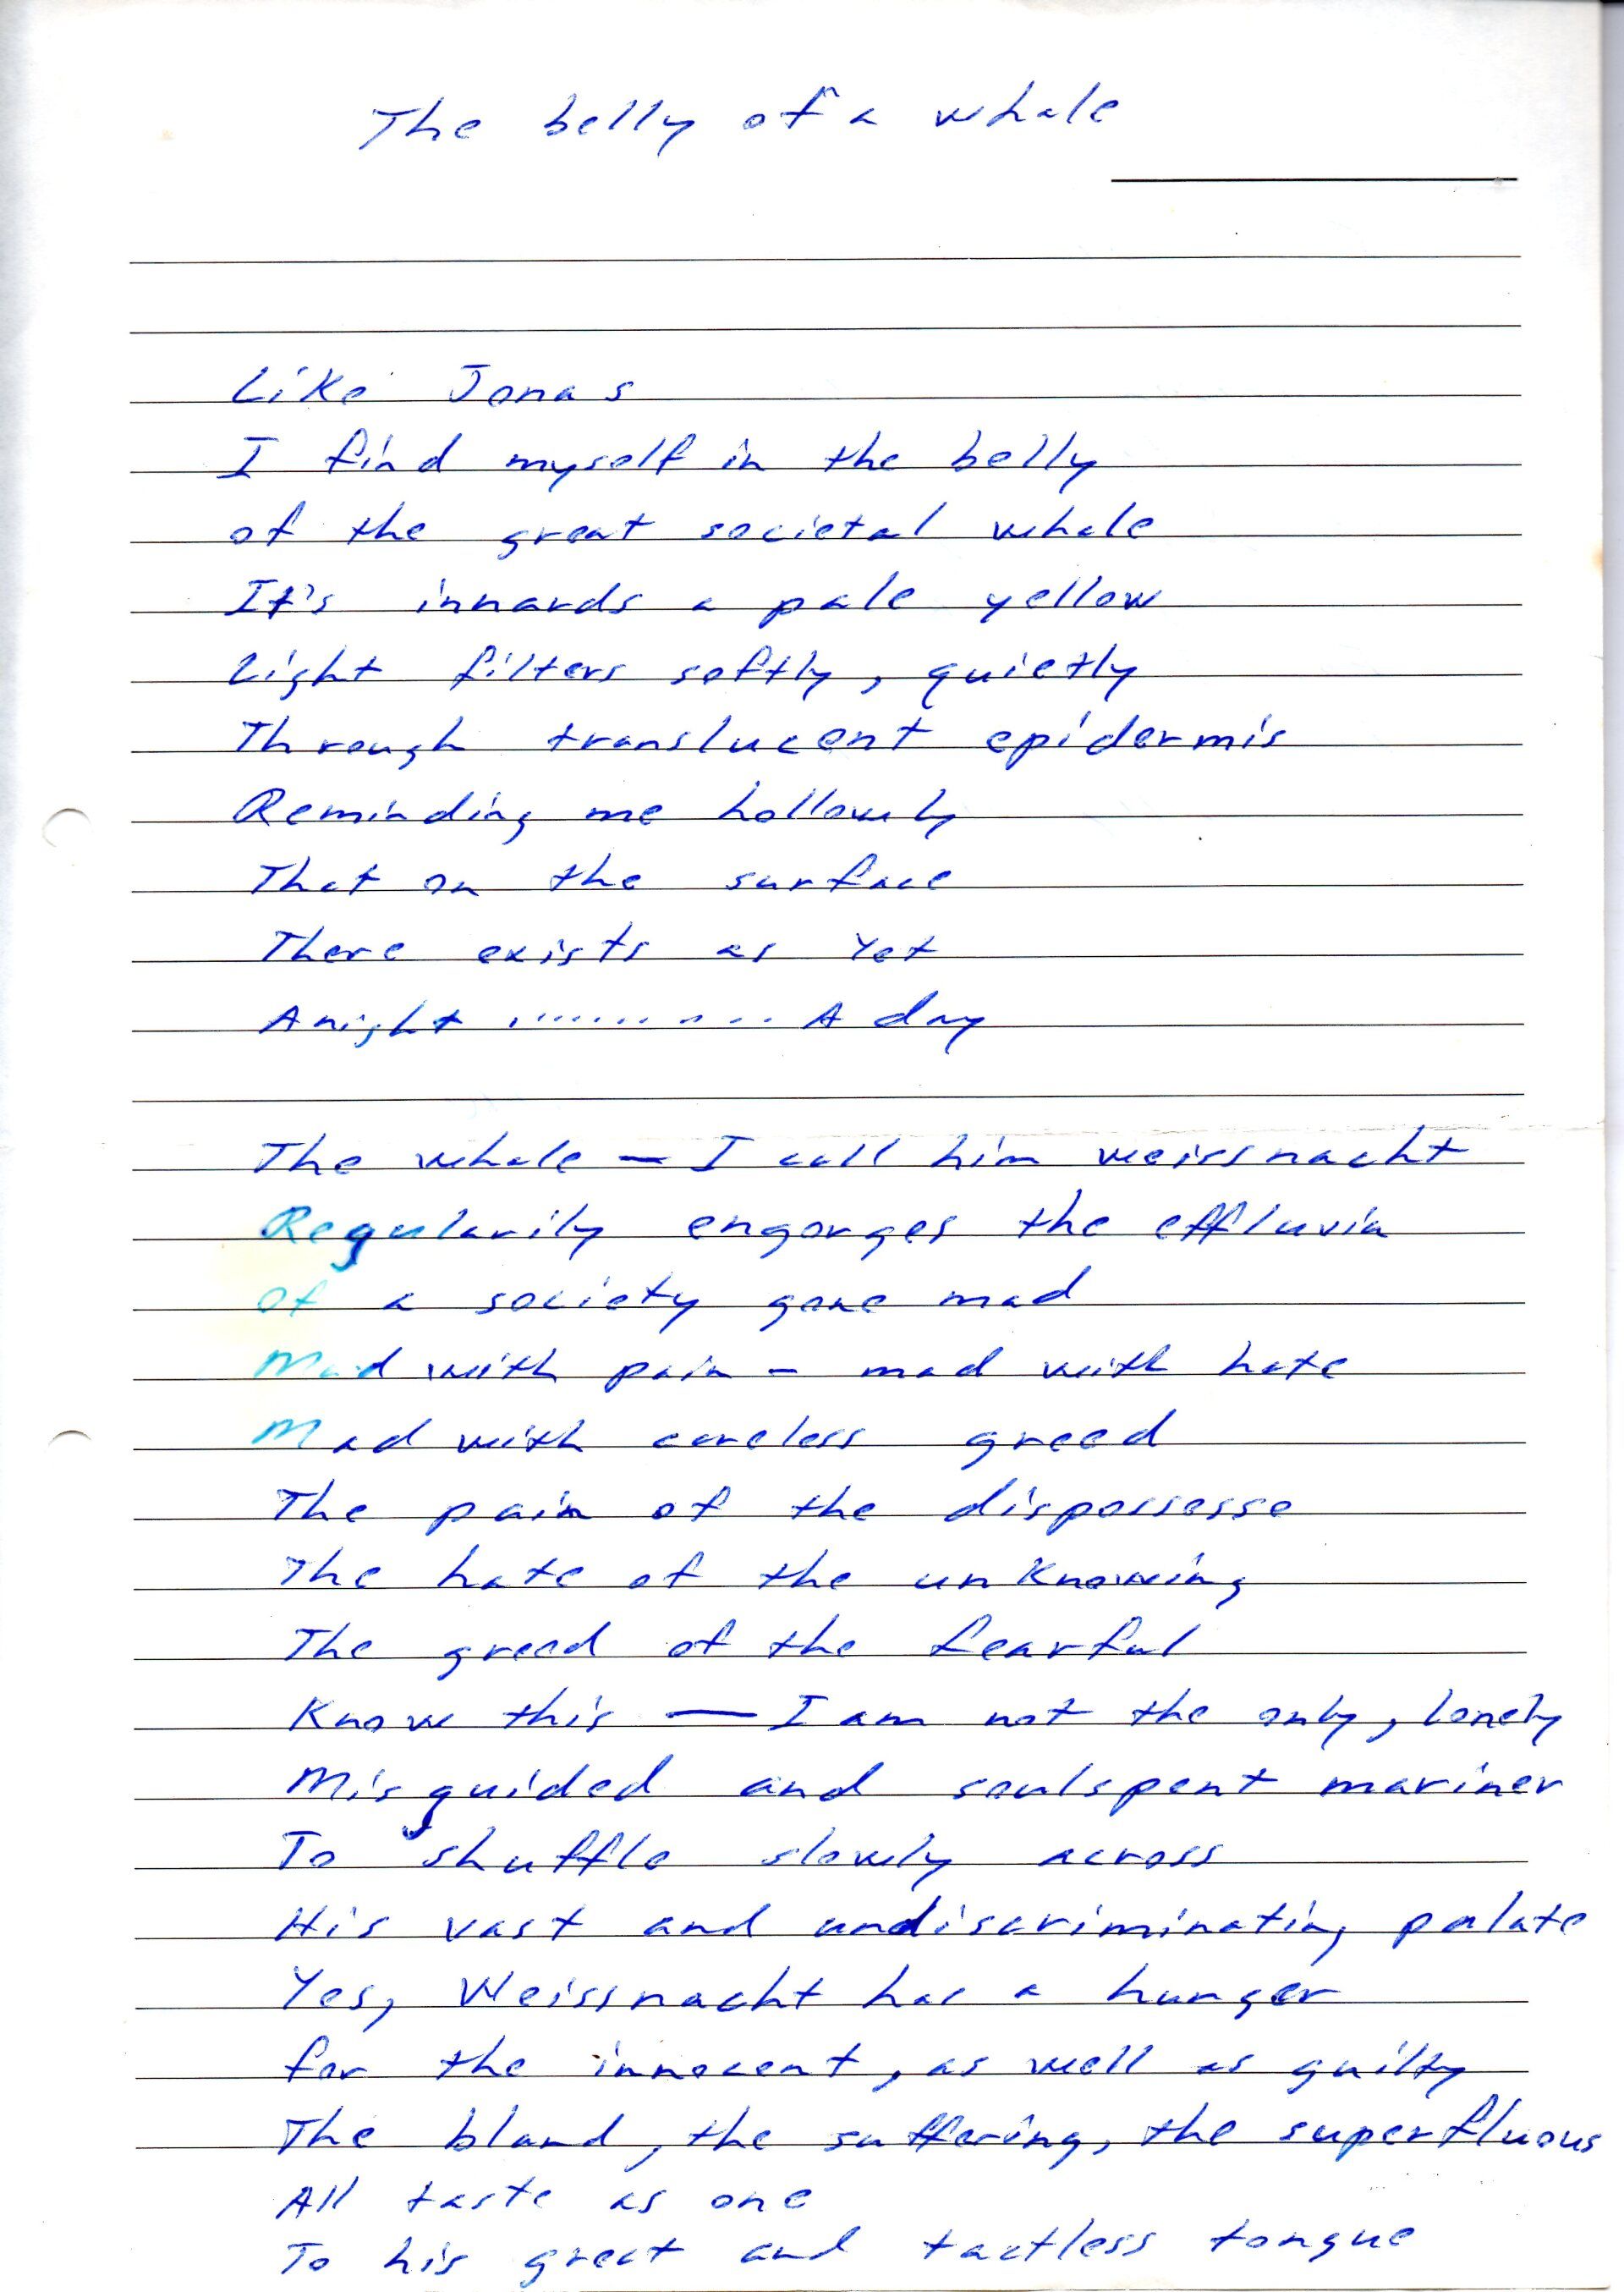 The belly of a whale
Like Jonas
I find myself in the belly
of the great societal whale
It's innards a pale yellow
Light filters softly, quietly
Through translucent epidermis
Reminding me hollowly
That on the surface
There exists as Yet
A night ........... A day
The whale — I call him weissnacht
Regularily engorges the effluvia
Of a society gone mad
Mad with pain - mad with hate
Mad with careless greed
The pain of the dispossesse
The hate of the unknowing
The greed of the fearful
Know this — I am not the only, lonely
Misguided and soulspent mariner
To shuffle slowly across
His vast and undiscriminating palate
Yes, Weissnacht has a hunger
for the innocent, as well as guilty
The bland, the suffering, the superfluous
All taste as one
To his great and tactless tongue